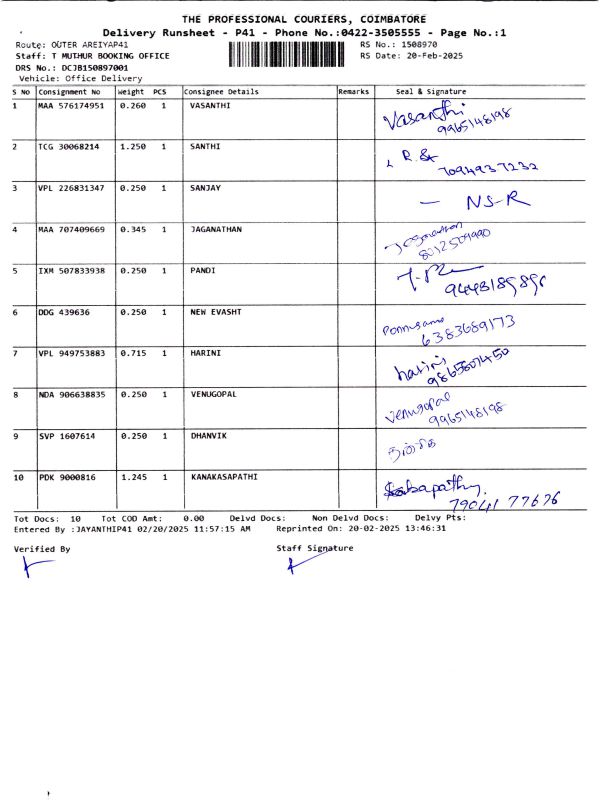 THE PROFESSIONAL COURIERS, COIMBATORE
Delivery Runsheet - P41 - Phone No.:0422-3505555 - Page No.:1
Route: OUTER AREIYAP41 RS No.: 1508970
Staff: T MUTHUR BOOKING OFFICE RS Date: 20-Feb-2025
DRS No.: DCJB150897001
Vehicle: Office Delivery
S No Consignment No Weight PCS Consignee Details Remarks Seal & Signature
1 MAA 576174951 0.260 1 VASANTHI Vasanthi
9965148198
2 TCG 30068214 1.250 1 SANTHI
7094937232
3 VPL 226831347 0.250 1 SANJAY — NS-R
4 MAA 707409669 0.345 1 JAGANATHAN Jaganathan
8012509990
5 IXM 507833938 0.250 1 PANDI
6 DDG 439636 0.250 1 NEW EVASHT
6383689173
7 VPL 949753883 0.715 1 HARINI harini
8 NDA 906638835 0.250 1 VENUGOPAL Venugopal
9965148198
9 SVP 1607614 0.250 1 DHANVIK
10 PDK 9000816 1.245 1 KANAKASAPATHI
79041 77676
Tot Docs: 10 Tot COD Amt: 0.00 Delvd Docs: Non Delvd Docs: Delvy Pts:
Entered By :JAYANTHIP41 02/20/2025 11:57:15 AM Reprinted On: 20-02-2025 13:46:31
Verified By Staff Signature